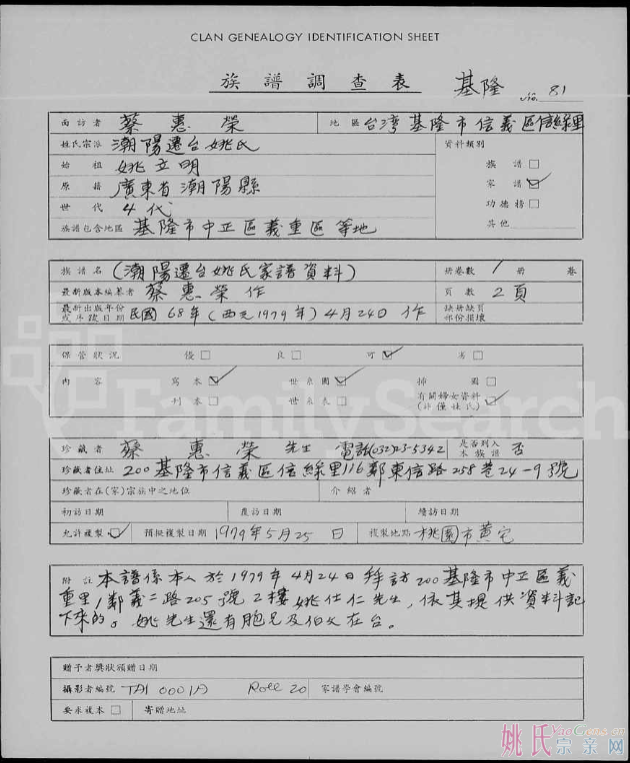 CLAN GENEALOGY IDENTIFICATION SHEET
族譜調查表 基隆 No. 81
面訪者 蔡惠榮 地區 台灣基隆市信義區信綠里
姓氏宗派 潮陽遷台姚氏 資料類別
始祖 姚立明 族譜□
原籍 廣東省潮陽縣 家譜☑
世代 4代 功德榜□
族譜包含地區 基隆市中正區義重區等地 其他
族譜名 (潮陽遷台姚氏家譜資料) 冊卷數 1 冊 卷
最新版本編纂者 蔡惠榮作 頁數 2頁
最新出版年份或手謄日期 民國68年(西元1979年)4月24日作 缺冊缺頁部份損壞
保管狀況 優□ 良□ 可☑ 劣□
內容 寫本☑ 世系圖☑ 插圖□
刊本□ 世系表□ 有關婦女資料(非僅姓氏)☑
珍藏者 蔡惠榮先生 電話(032)23-5342 是否列入本族譜 否
珍藏者住址 200基隆市信義區信綠里116鄰東信路258巷24-9號
珍藏者在(家)宗族中之地位 介紹者
初訪日期 復訪日期 續訪日期
允許複製☑ 預擬複製日期 1979年5月25日 複製地點 桃園市黃宅
附註 本譜係本人於1979年4月24日拜訪200基隆市中正區義
重里1鄰義二路205號2樓姚仕仁先生,依其提供資料記
下來的。姚先生還有胞兄及伯父在台。
贈予者獎狀頒贈日期
攝影者編號 TAI 0001A Roll 20 家譜學會編號
要求複本□ 寄贈地址
FamilySearch
姚氏宗亲网
YaoGens.cn